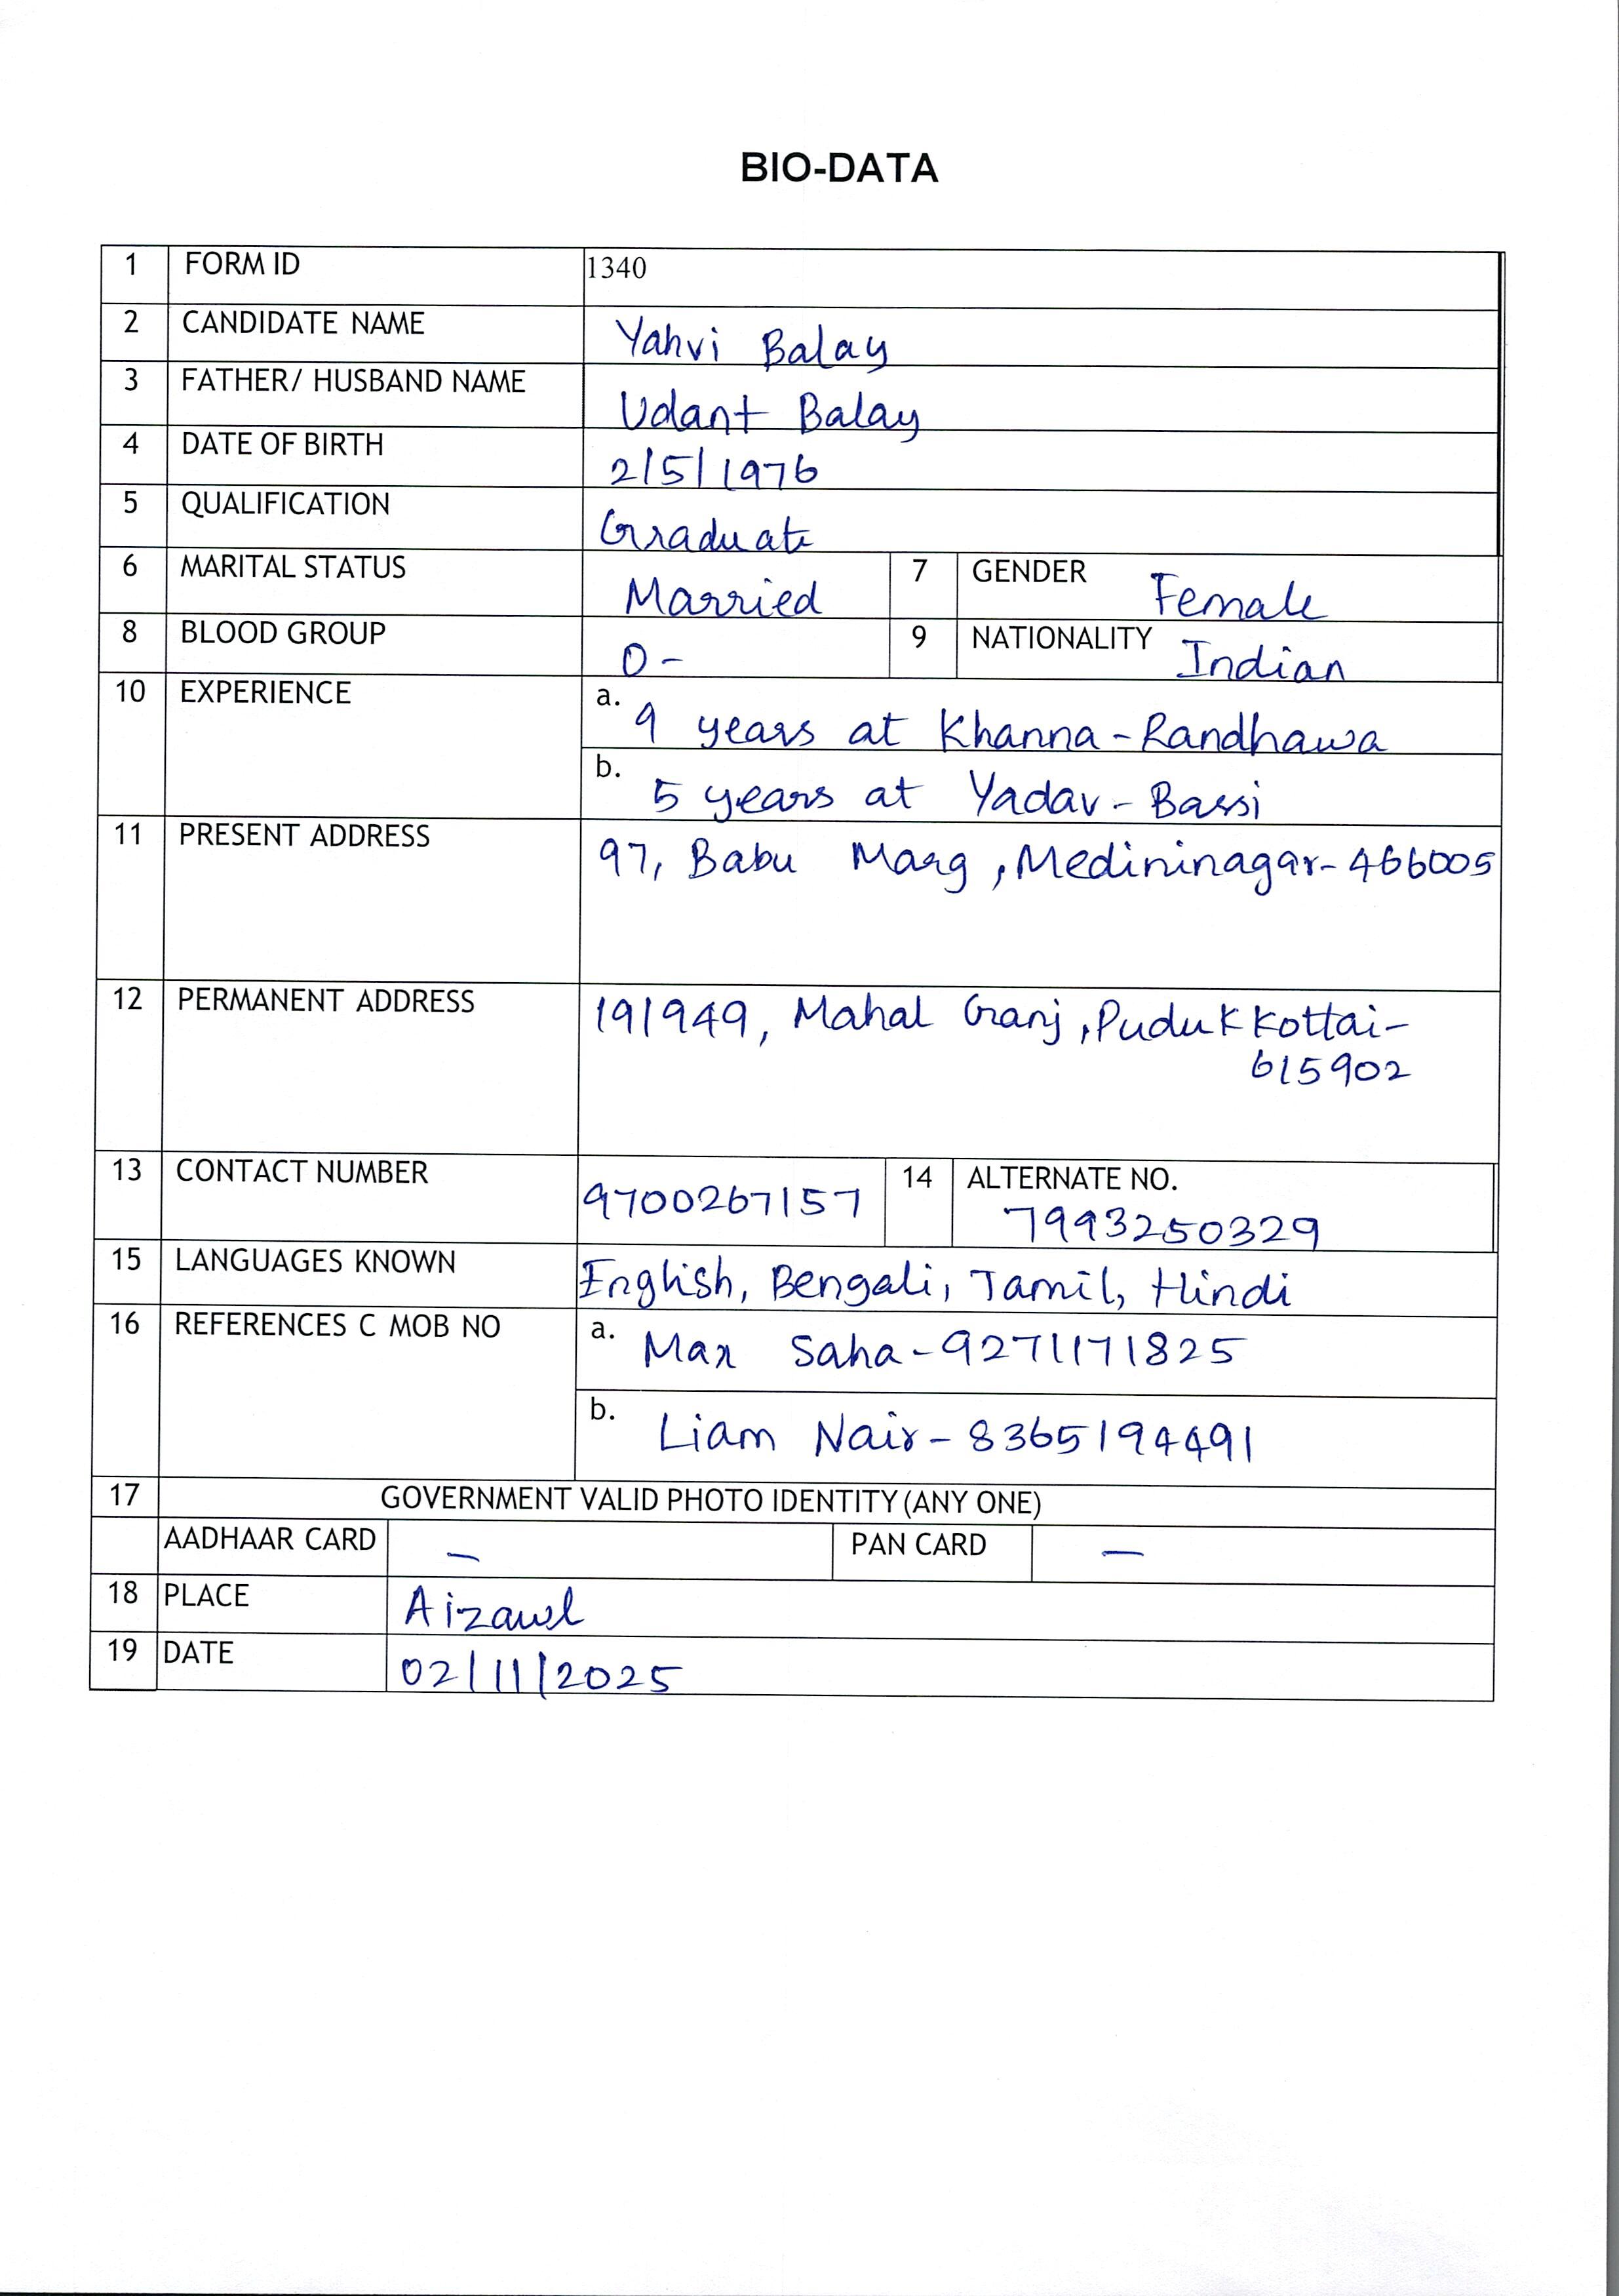 BIO-DATA
1 FORM ID 1340
2 CANDIDATE NAME Yahvi Balay
3 FATHER/ HUSBAND NAME Udant Balay
4 DATE OF BIRTH 2/5/1976
5 QUALIFICATION Graduate
6 MARITAL STATUS Married 7 GENDER Female
8 BLOOD GROUP O- 9 NATIONALITY Indian
10 EXPERIENCE a. 9 years at Khanna-Randhawa
b. 5 years at Yadav-Bassi
11 PRESENT ADDRESS 97, Babu Marg, Medininagar-466005
12 PERMANENT ADDRESS 191949, Mahal Ganj, Pudukkottai-
615902
13 CONTACT NUMBER 9700267157 14 ALTERNATE NO.
7993250329
15 LANGUAGES KNOWN English, Bengali, Tamil, Hindi
16 REFERENCES C MOB NO a. Max Saha-9271171825
b. Liam Nair-8365194491
17 GOVERNMENT VALID PHOTO IDENTITY (ANY ONE)
AADHAAR CARD - PAN CARD -
18 PLACE Aizawl
19 DATE 02/11/2025